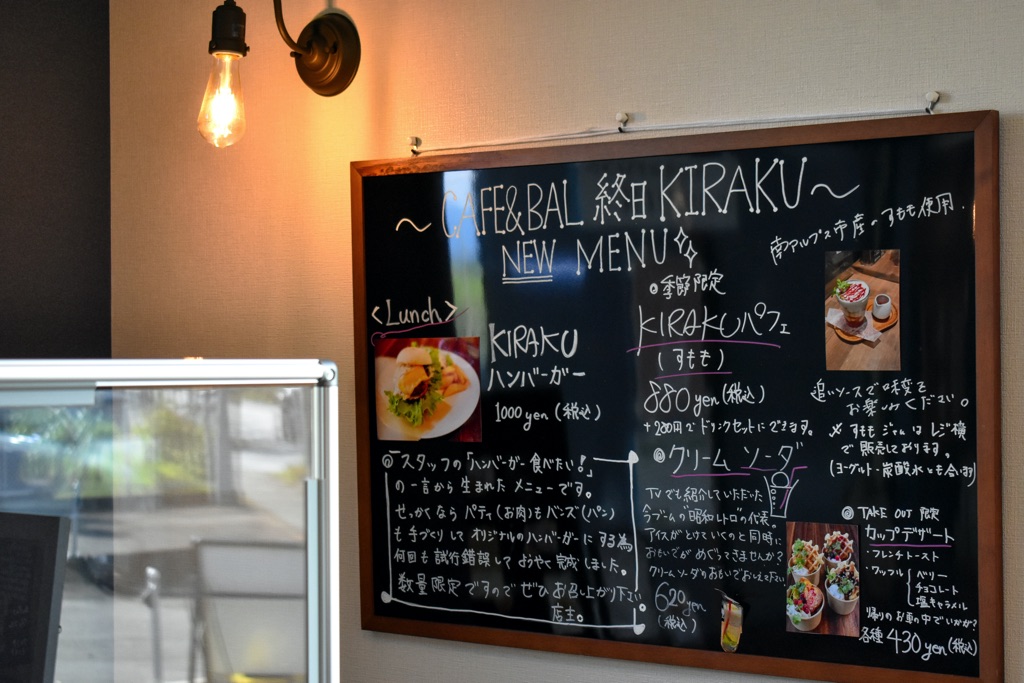 ~CAFE&BAL 終日KIRAKU~
NEW MENU
<Lunch>
KIRAKU
ハンバーガー
1000yen(税込)
スタッフの「ハンバーガー食べたい!」
の一言から生まれたメニューです。
せっかくなら パティ(お肉)もバンズ(パン)
も手づくりして オリジナルのハンバーガーにする為
何回も試行錯誤して ようやく完成しました。
数量限定ですので ぜひお召し上がり下さい
店主。
季節限定
KIRAKUパフェ
(すもも)
880yen(税込)
+280円でドリンクセットにできます。
南アルプス市産のすもも使用.
追いソースで味変を
お楽しみください。
すももジャムはレジ横
で販売しております。
(ヨーグルト・炭酸水とも合います)
クリームソーダ
TVでも紹介していただいた
今ブームの"昭和レトロ"の代表。
アイスがとけていくのと同時に
おもいでがめぐってきませんか?
クリームソーダのおもいでおしえて下さい
620yen
(税込)
TAKE OUT 限定
カップデザート
・フレンチトースト
・ワッフル
ベリー
チョコレート
塩キャラメル
帰りのお車の中でいかが?
各種430yen(税込)